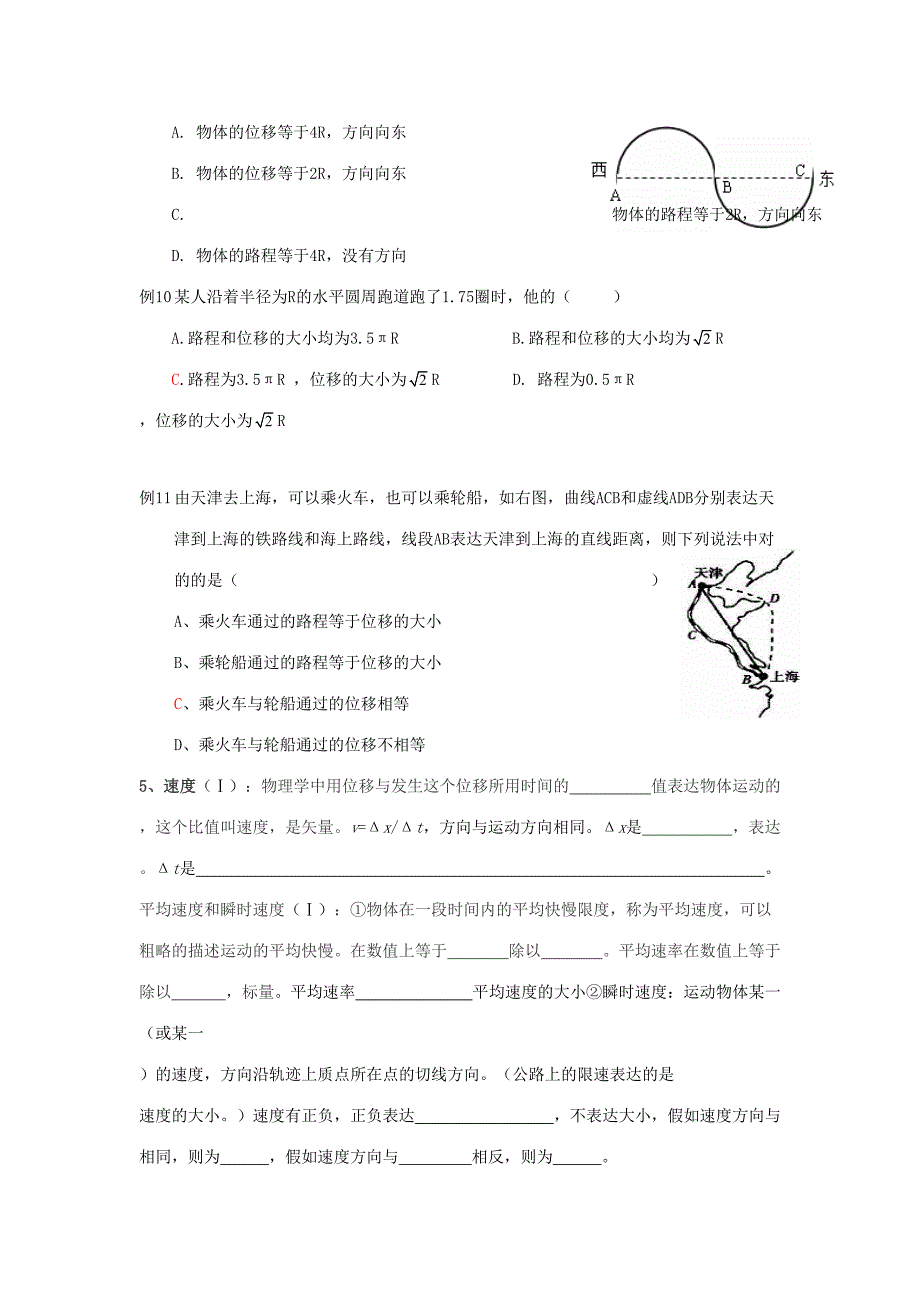 A. 物体的位移等于4R，方向向东
B. 物体的位移等于2R，方向向东
C. 物体的路程等于2R，方向向东
D. 物体的路程等于4R，没有方向
西
A
B
C
东
例10 某人沿着半径为R的水平圆周跑道跑了1.75圈时，他的（ ）
A.路程和位移的大小均为3.5πR B.路程和位移的大小均为√2R
C.路程为3.5πR ，位移的大小为√2R D. 路程为0.5πR
，位移的大小为√2R
例11 由天津去上海，可以乘火车，也可以乘轮船，如右图，曲线ACB和虚线ADB分别表达天
津到上海的铁路线和海上路线，线段AB表达天津到上海的直线距离，则下列说法中对
的的是（ ）
天津
A
D
C
B
上海
A、乘火车通过的路程等于位移的大小
B、乘轮船通过的路程等于位移的大小
C、乘火车与轮船通过的位移相等
D、乘火车与轮船通过的位移不相等
5、速度（Ⅰ）：物理学中用位移与发生这个位移所用时间的_________值表达物体运动的
，这个比值叫速度，是矢量。v=Δx/Δt，方向与运动方向相同。Δx是__________，表达
。Δt是_______________________________________________________________。
平均速度和瞬时速度（Ⅰ）：①物体在一段时间内的平均快慢限度，称为平均速度，可以
粗略的描述运动的平均快慢。在数值上等于_______除以_______。平均速率在数值上等于
除以______，标量。平均速率_____________平均速度的大小②瞬时速度：运动物体某一
（或某一
）的速度，方向沿轨迹上质点所在点的切线方向。（公路上的限速表达的是
速度的大小。）速度有正负，正负表达_______________，不表达大小，假如速度方向与
相同，则为_____，假如速度方向与________相反，则为_____。